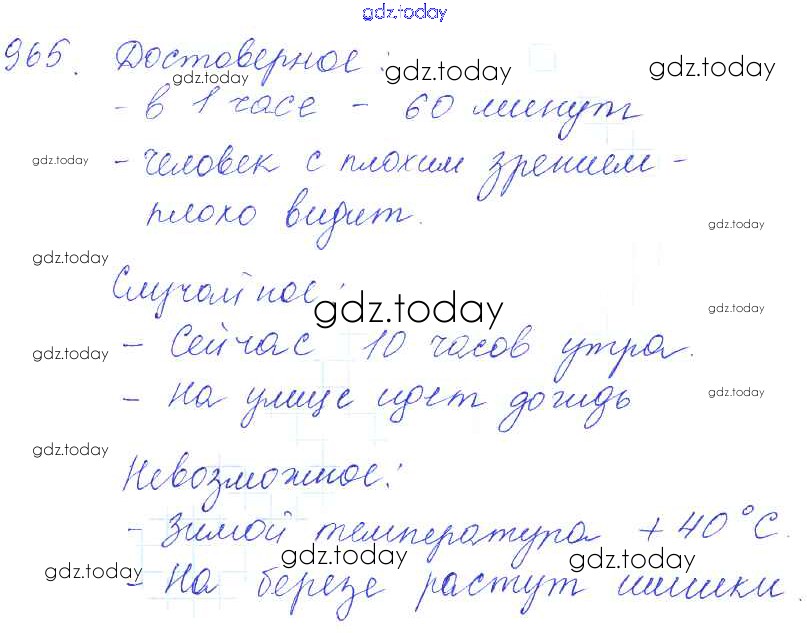 gdz.today
965. Достоверное:
gdz.today gdz.today gdz.today
- в 1 часе - 60 минут
gdz.today - человек с плохим зрением -
плохо видит. gdz.today
gdz.today
Случайное:
gdz.today gdz.today
gdz.today - Сейчас 10 часов утра.
- На улице идет дождь gdz.today
gdz.today
Невозможное:
- Зимой температура +40°С.
gdz.today gdz.today gdz.today
- На березе растут шишки.